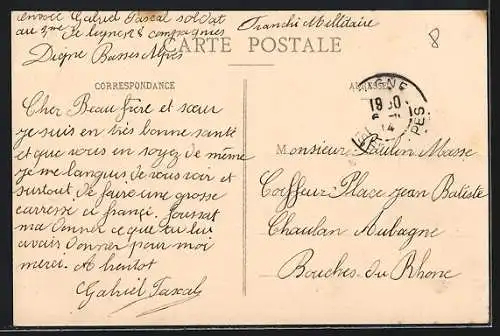 envoie Gabriel Pascal soldat
au 3me de ligne 28 compagnies
Digne Basses Alpes
Franchi Millitaire
8
CARTE POSTALE
CORRESPONDANCE
ADRESSE
DIGNE
19 30
14
PES
Cher Beau frère et sœur
je suis en très bonne santé
et que vous en soyez de même
je me languis de vous voir et
surtout de faire une grosse
carresse a francé. Joussat
ma donner ce que tu lui
avais donner pour moi
merci. A bientot
Gabriel Pascal
Monsieur Paulin Masse
Coiffeur Place jean Batiste
Chaulan Aubagne
Bouches du Rhone